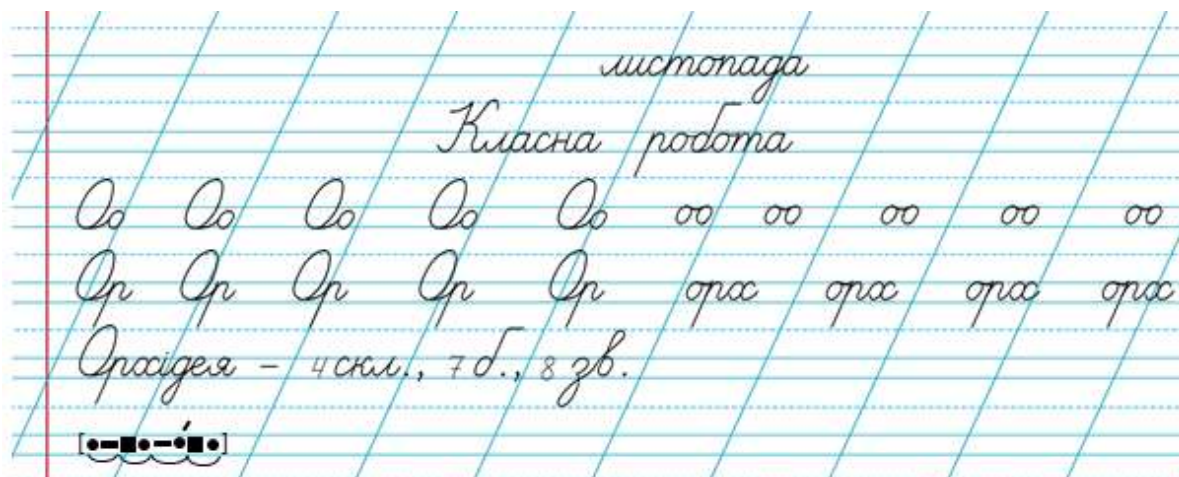 листопада
Класна робота
Оо Оо Оо Оо Оо оо оо оо оо оо
Ор Ор Ор Ор Ор орх орх орх орх
Орхідея – 4 скл., 7 б., 8 зв.